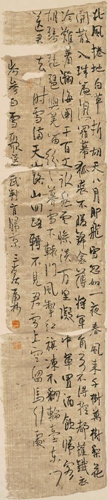 北風捲地白草折胡天八月即飛雪忽如一夜春風來千樹萬樹梨花
開散入珠簾濕羅幕狐裘不暖錦衾薄將軍角弓不得控都護鐵衣
冷難著瀚海闌干百丈冰愁雲慘淡萬里凝中軍置酒飲歸客
胡琴琵琶與羌笛紛紛暮雪下轅門風掣紅旗凍不翻輪臺東門
送君去去時雪滿天山路山迴路轉不見君雪上空留馬行處
岑參白雪歌送武判官歸京